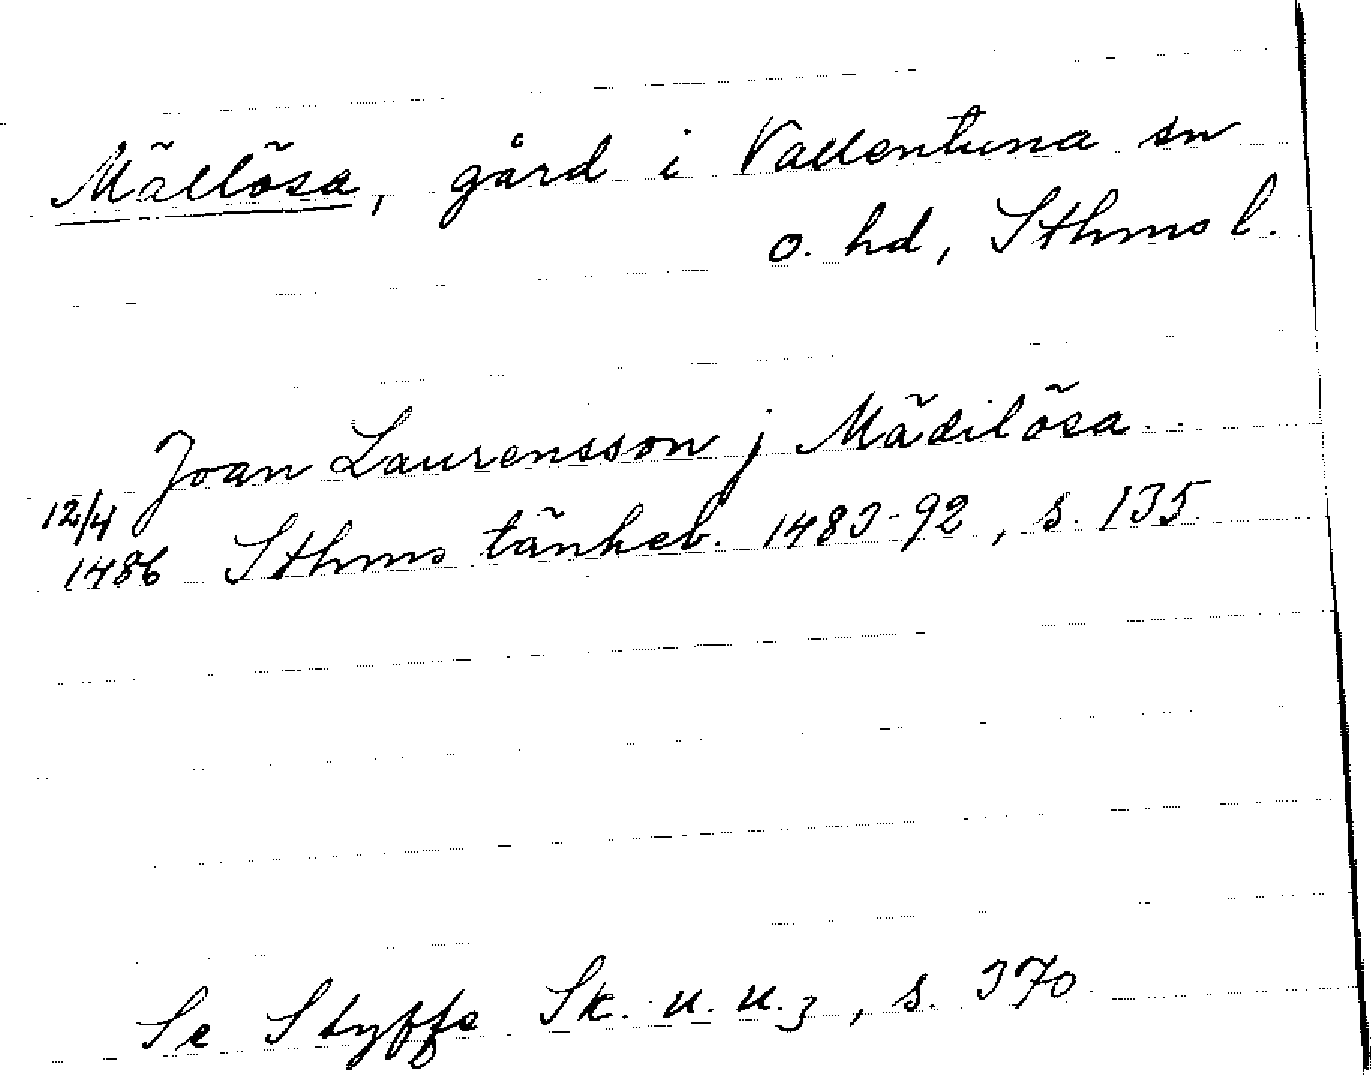 Mällösa, gård i Vallentuna sn
o. hd, Sthms l.
Joan Laurensson j Mädilösa
12/4
1486 Sthms tänkeb. 1483-92, s. 135
Se Styffe Sk. u. u.3, s. 370